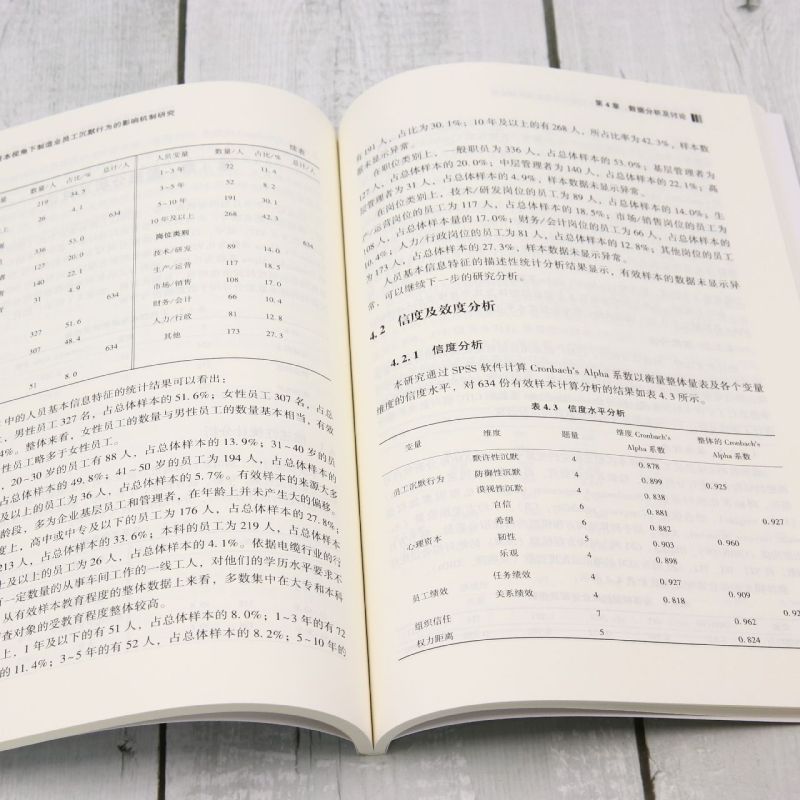 本视角下制造业员工沉默行为的影响机制研究
续表
数量/人 占比/% 总计/人 人员变量 数量/人 占比/% 总计/人
219 34.5 1~3年 72 11.4
26 4.1 3~5年 52 8.2
634 5~10年 191 30.1
336 53.0 10年及以上 268 42.3
127 20.0 岗位类别 634
140 22.1 技术/研发 89 14.0
31 4.9 生产/运营 117 18.5
634 市场/销售 108 17.0
327 51.6 财务/会计 66 10.4
307 48.4 人力/行政 81 12.8
634 其他 173 27.3
51 8.0
中的人员基本信息特征的统计结果可以看出：
男性员工327名，占总体样本的51.6%；女性员工307名，占总
4%。整体来看，女性员工的数量与男性员工的数量基本相当，有效
性员工略多于女性员工。
，20~30岁的员工有88人，占总体样本的13.9%；31~40岁的员
占总体样本的49.8%；41~50岁的员工为194人，占总体样本的
及以上的员工为36人，占总体样本的5.7%。有效样本的来源大多
龄段，多为企业基层员工和管理者，在年龄上并未产生大的偏移。
度上，高中或中专及以下的员工为176人，占总体样本的27.8%；
213人，占总体样本的33.6%；本科的员工为219人，占总体样本
上及以上的员工为26人，占总体样本的4.1%。依据电缆行业的行
有一定数量的从事车间工作的一线工人，对他们的学历水平要求不
从有效样本教育程度的整体数据上来看，多数集中在大专和本科
查对象的受教育程度整体较高。
上，1年及以下的有51人，占总体样本的8.0%；1~3年的有72
的11.4%；3~5年的有52人，占总体样本的8.2%；5~10年的
第4章 数据分析及讨论
有191人，占比为30.1%；10年及以上的有268人，所占比率为42.3%，样本数
据未显示异常。
在职位类别上，一般职员为336人，占总体样本的53.0%；基层管理者为
127人，占总体样本的20.0%；中层管理者为140人，占总体样本的22.1%；高
层管理者为31人，占总体样本的4.9%，样本数据未显示异常。
在岗位类别上，技术/研发岗位的员工为89人，占总体样本的14.0%；生
产/运营岗位的员工为117人，占总体样本的18.5%；市场/销售岗位的员工为
108人，占总体样本量的17.0%；财务/会计岗位的员工为66人，占总体样本的
10.4%；人力/行政岗位的员工为81人，占总体样本的12.8%；其他岗位的员工
为173人，占总体样本的27.3%，样本数据未显示异常。
人员基本信息特征的描述性统计分析结果显示，有效样本的数据未显示异
常，可以继续下一步的研究分析。
4.2 信度及效度分析
4.2.1 信度分析
本研究通过SPSS软件计算Cronbach's Alpha系数以衡量整体量表及各个变量
维度的信度水平，对634份有效样本计算分析的结果如表4.3所示。
表4.3 信度水平分析
变量 维度 题量 维度Cronbach's Alpha系数 整体的Cronbach's Alpha系数
默许性沉默 4 0.878
员工沉默行为 防御性沉默 4 0.899 0.925
漠视性沉默 4 0.838
自信 6 0.881 0.927
希望 6 0.882
心理资本 韧性 5 0.903 0.960
乐观 4 0.898
任务绩效 4 0.927
员工绩效 关系绩效 4 0.818 0.909
组织信任 7 0.962
权力距离 5 0.824